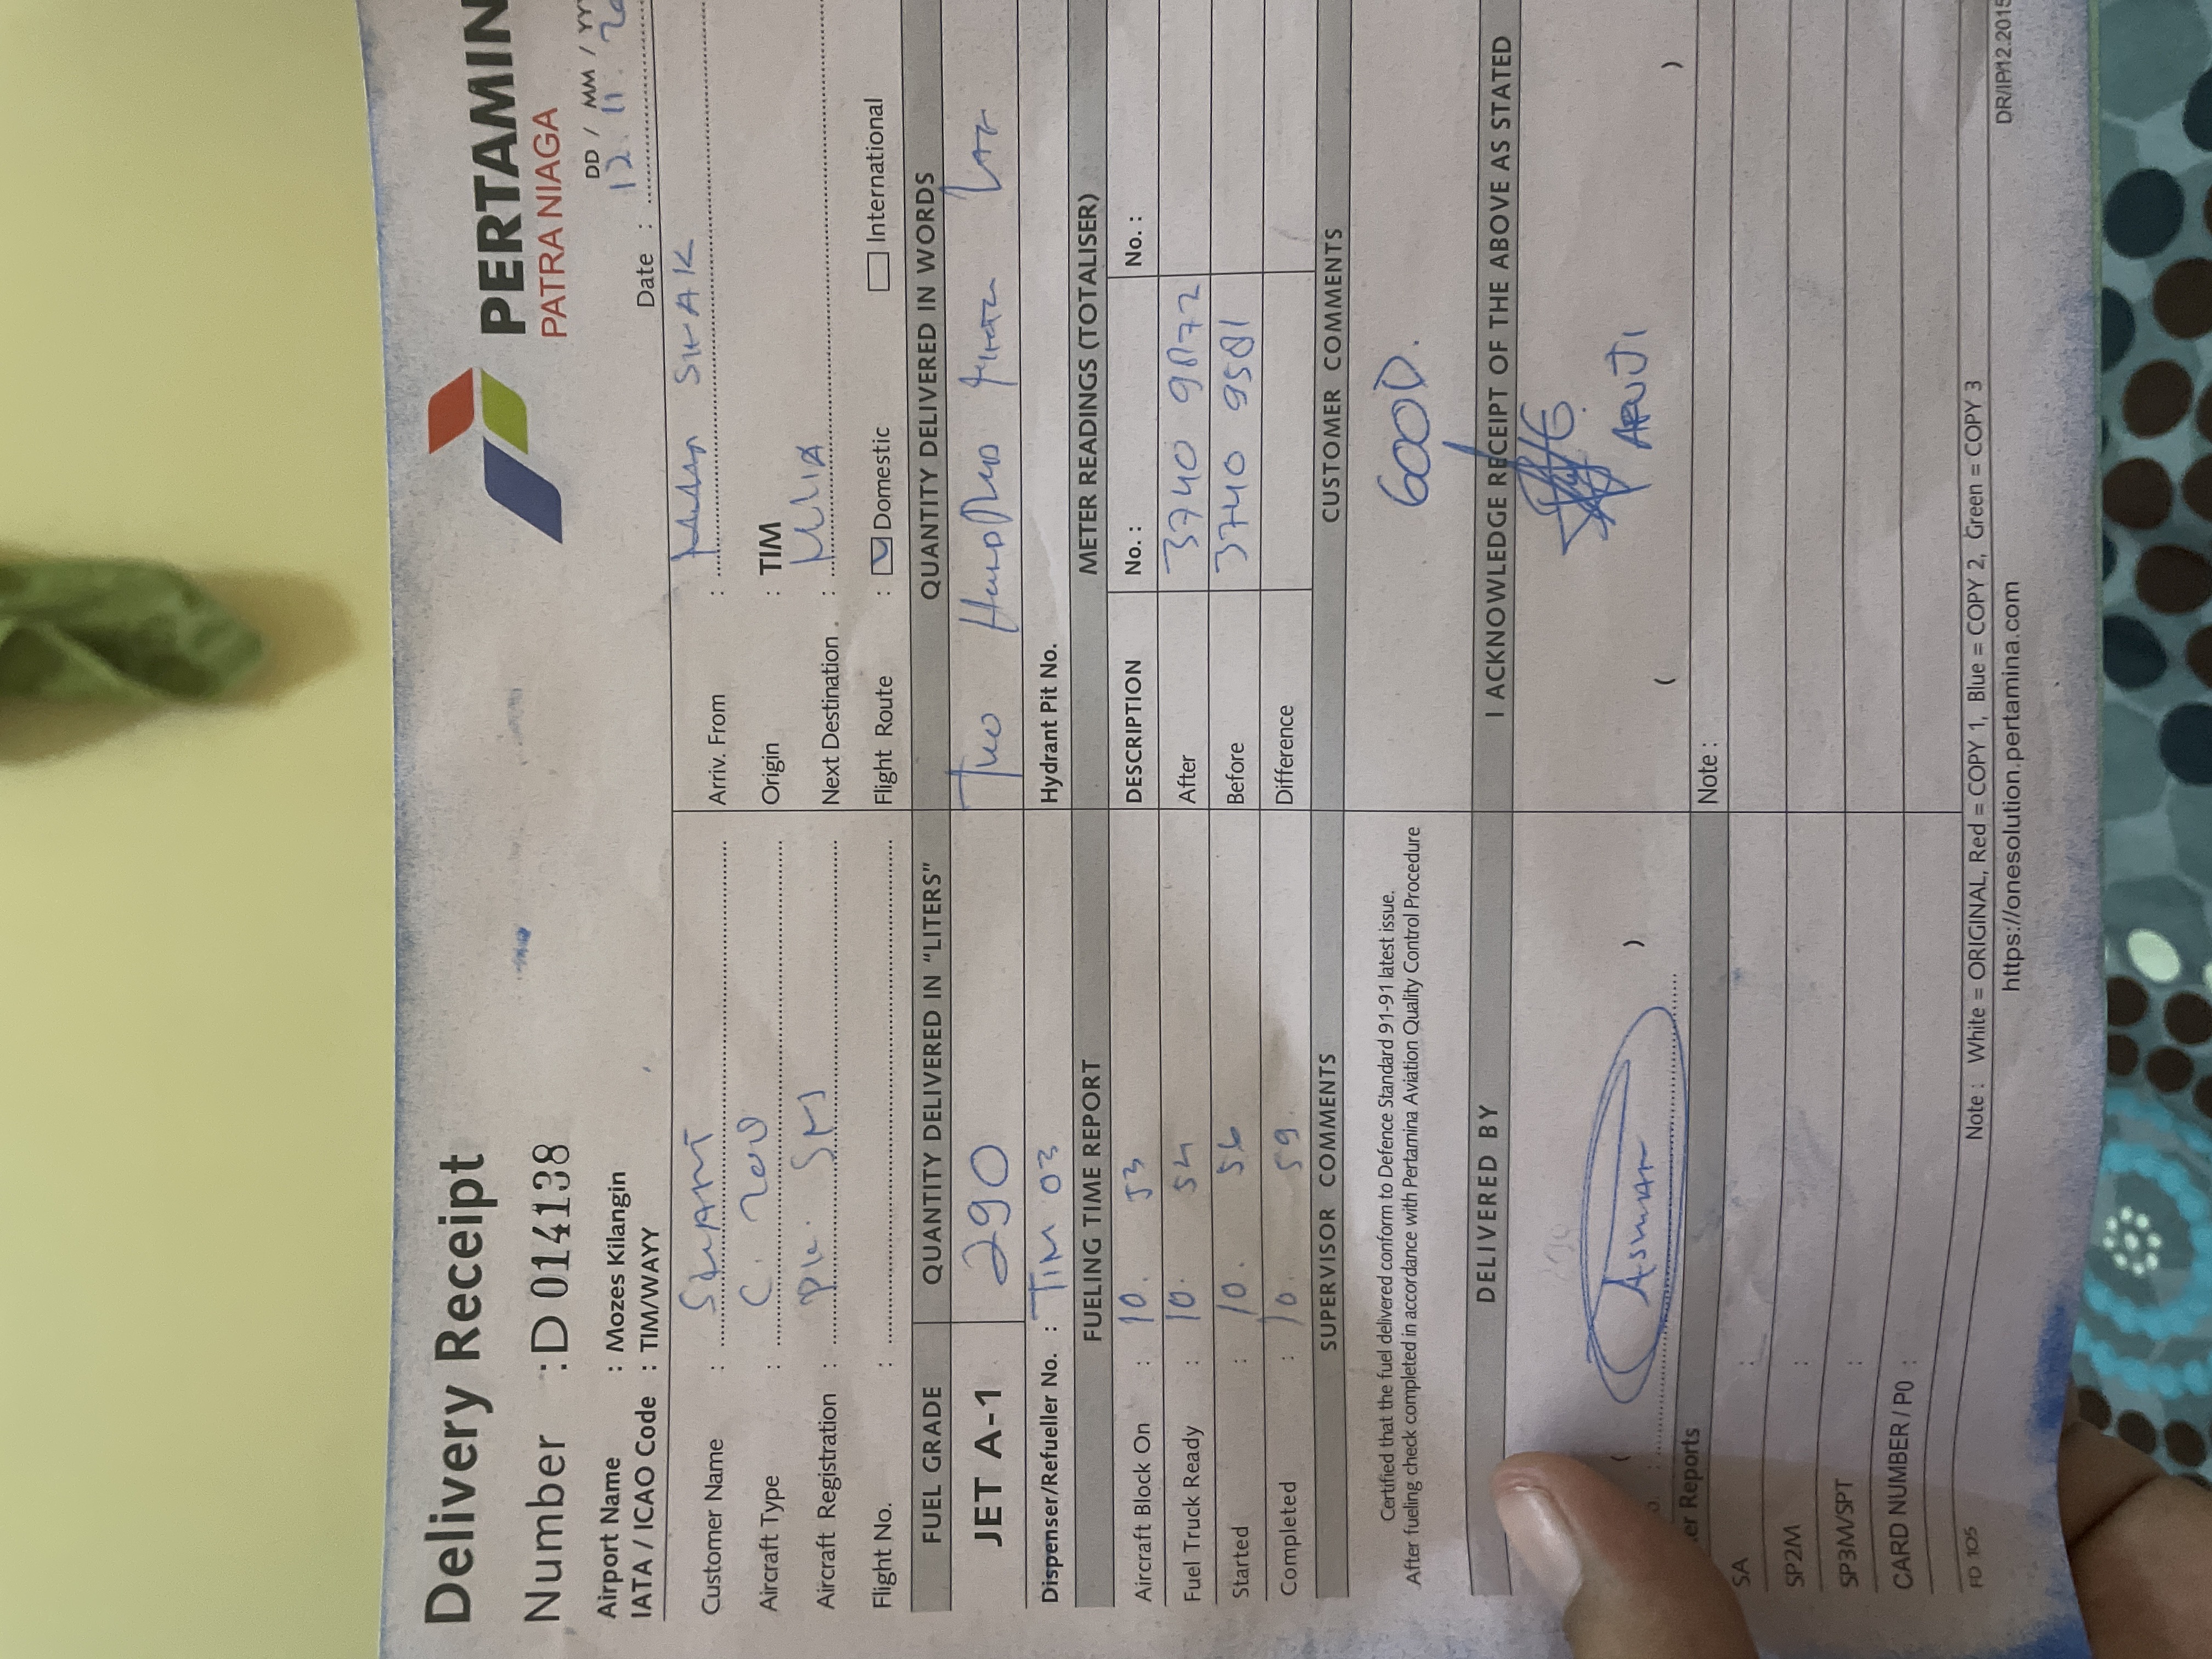 Delivery Receipt
PERTAMIN
PATRA NIAGA
Number : D 014138
DD / MM / YY
Airport Name : Mozes Kilangin
12. 11. 20
IATA / ICAO Code : TIM/WAYY
Date :
Customer Name : SMART
Arriv. From :
Aircraft Type : C. 208
Origin : TIM
Aircraft Registration : PK.
Next Destination :
Flight No. :
Flight Route : Domestic International
FUEL GRADE
QUANTITY DELIVERED IN "LITERS"
QUANTITY DELIVERED IN WORDS
JET A-1
290
Two Hundred
Dispenser/Refueller No. : TIM 03
Hydrant Pit No.
FUELING TIME REPORT
METER READINGS (TOTALISER)
Aircraft Block On : 10. 53
DESCRIPTION No. : No. :
Fuel Truck Ready : 10. 54
After 3740 9872
Started : 10. 56
Before 3740 9581
Completed : 10. 59.
Difference
SUPERVISOR COMMENTS
CUSTOMER COMMENTS
Certified that the fuel delivered conform to Defence Standard 91-91 latest issue.
After fueling check completed in accordance with Pertamina Aviation Quality Control Procedure
GOOD.
DELIVERED BY
I ACKNOWLEDGE RECEIPT OF THE ABOVE AS STATED
( Asmar )
( )
er Reports
Note :
SA :
SP2M :
SP3M/SPT :
CARD NUMBER / PO :
FD 105
Note : White = ORIGINAL, Red = COPY 1, Blue = COPY 2, Green = COPY 3
DR/IP/12.2015
https://onesolution.pertamina.com